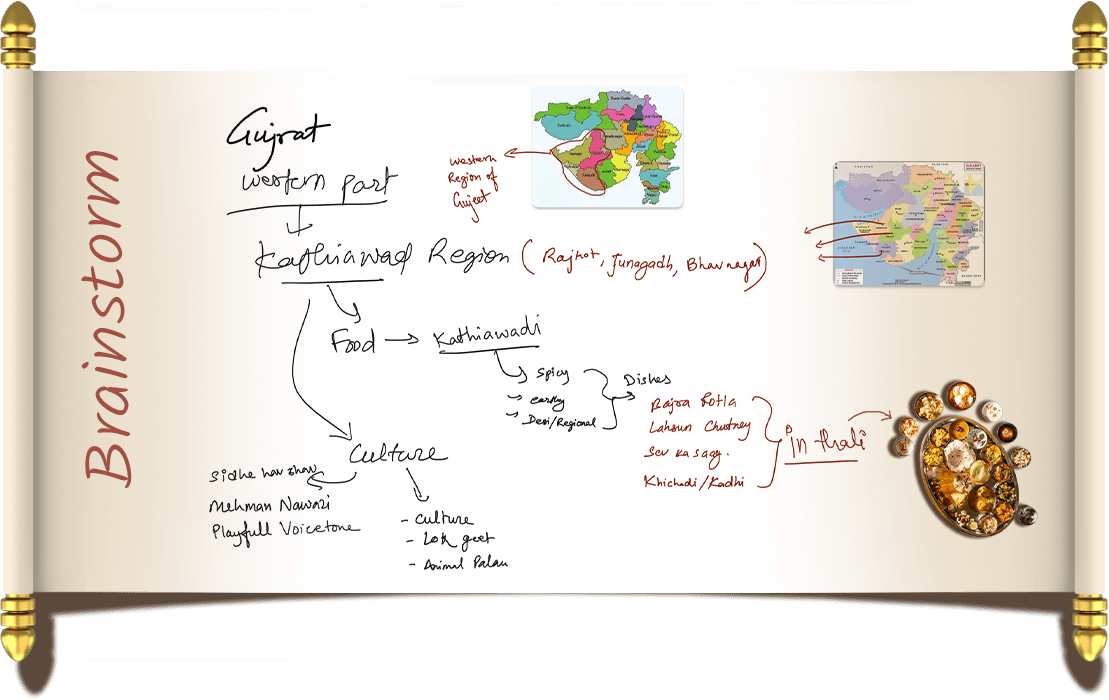 Brainstorm
Gujrat
western part
western
Region of
Gujeet
Kathiawad Region (Rajkot, Junagadh, Bhavnagar)
Food → Kathiawadi
spicy
earthy
Desi/Regional
Dishes
Bajra Rotla
Lahsun Chutney
Sev ka saag.
Khichadi/Kadhi
in thali
Culture
Mehman Nawazi
Playfull Voicetone
- Culture
- Lok geet
- Animal Palan